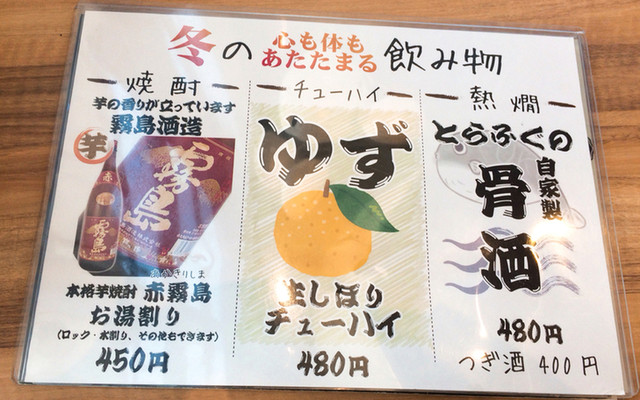 冬の心も体もあたたまる飲み物
焼酎
芋の香りが立っています
霧島酒造
芋
赤
霧島
霧島
あかきりしま
本格芋焼酎 赤霧島
お湯割り
(ロック・水割り、その他もできます)
450円
チューハイ
ゆず
生しぼり
チューハイ
480円
熱燗
とらふぐの
自家製
骨酒
480円
つぎ酒 400円